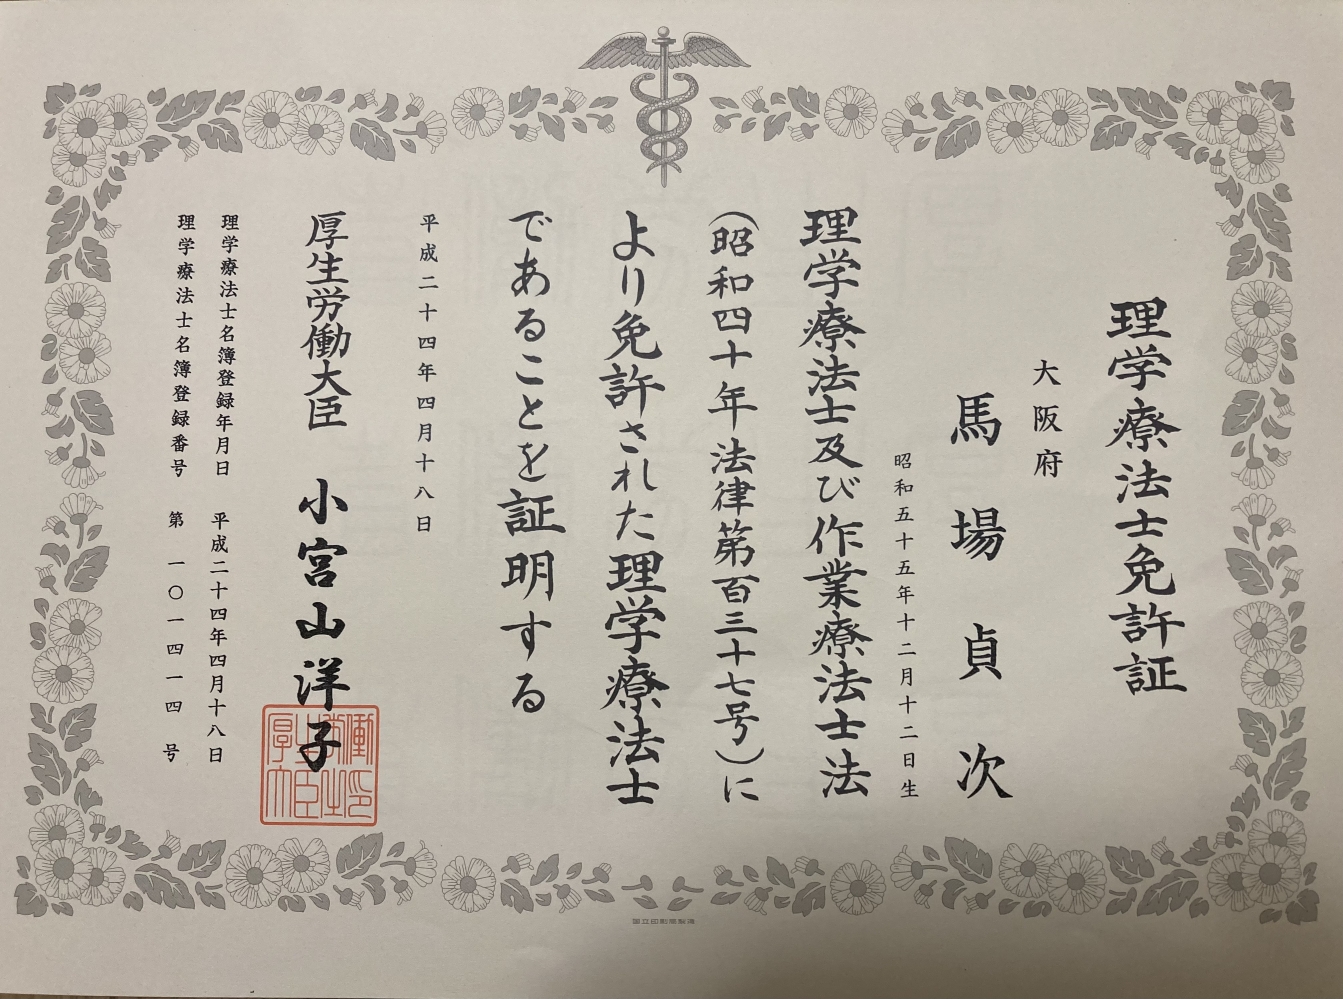 理学療法士免許証
大阪府
馬場貞次
昭和五十五年十二月十二日生
理学療法士及び作業療法士法
（昭和四十年法律第百三十七号）に
より免許された理学療法士
であることを証明する
平成二十四年四月十八日
厚生労働大臣 小宮山洋子
理学療法士名簿登録年月日 平成二十四年四月十八日
理学療法士名簿登録番号 第一〇一四一四号
国立印刷局製造